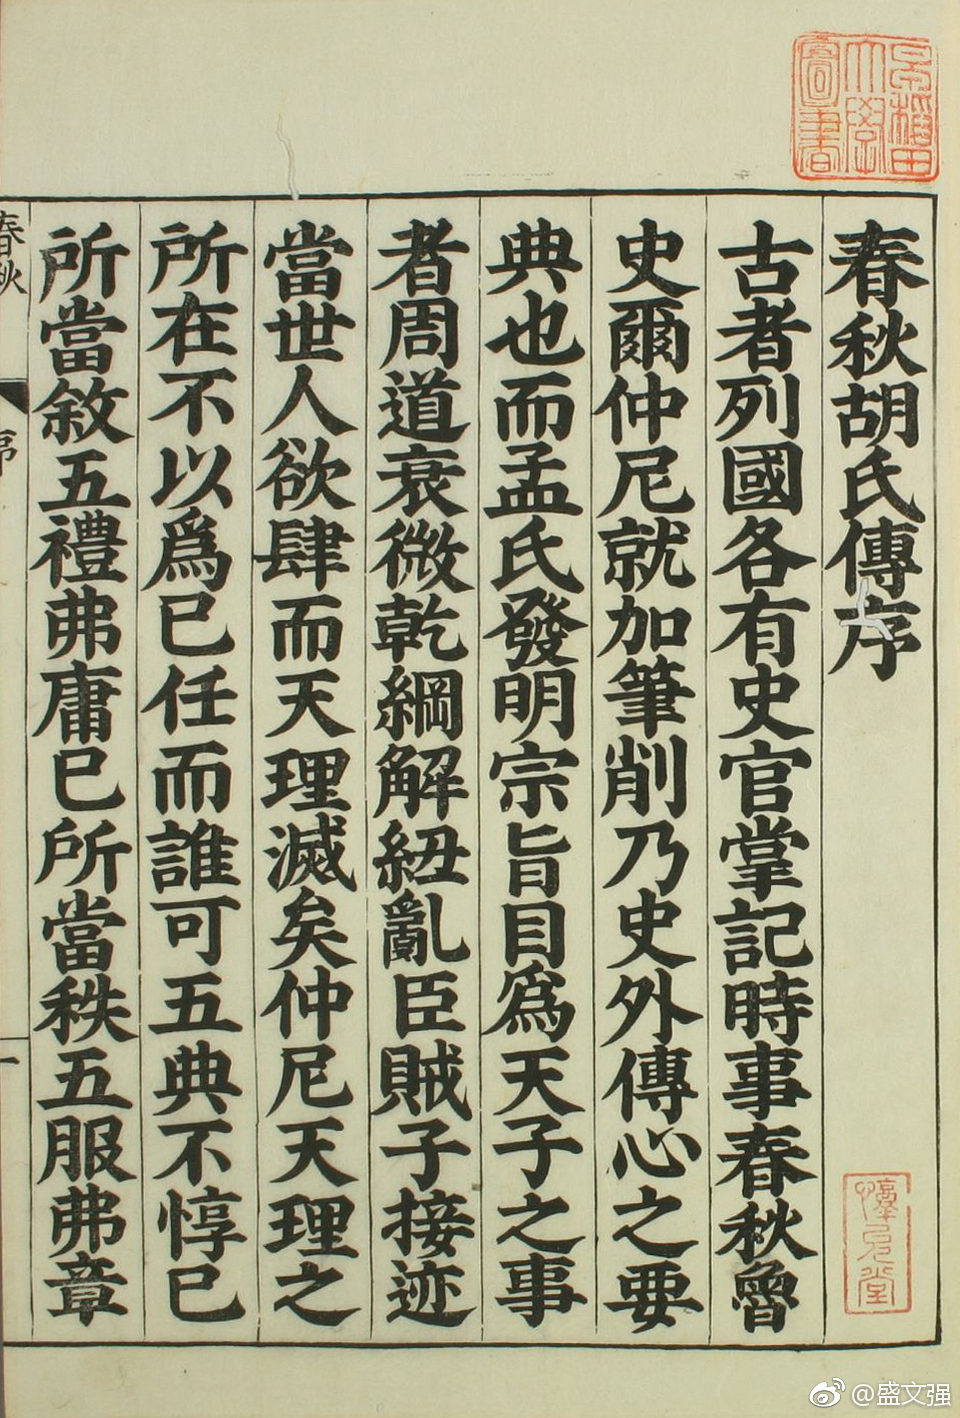 春秋胡氏傳序
古者列國各有史官掌記時事春秋魯
史爾仲尼就加筆削乃史外傳心之要
典也而孟氏發明宗旨目爲天子之事
者周道衰微乾綱解紐亂臣賊子接迹
當世人欲肆而天理滅矣仲尼天理之
所在不以爲已任而誰可五典不惇已
所當敘五禮弗庸已所當秩五服弗章
春秋
序
一
早稻田
大學
圖書
@盛文强